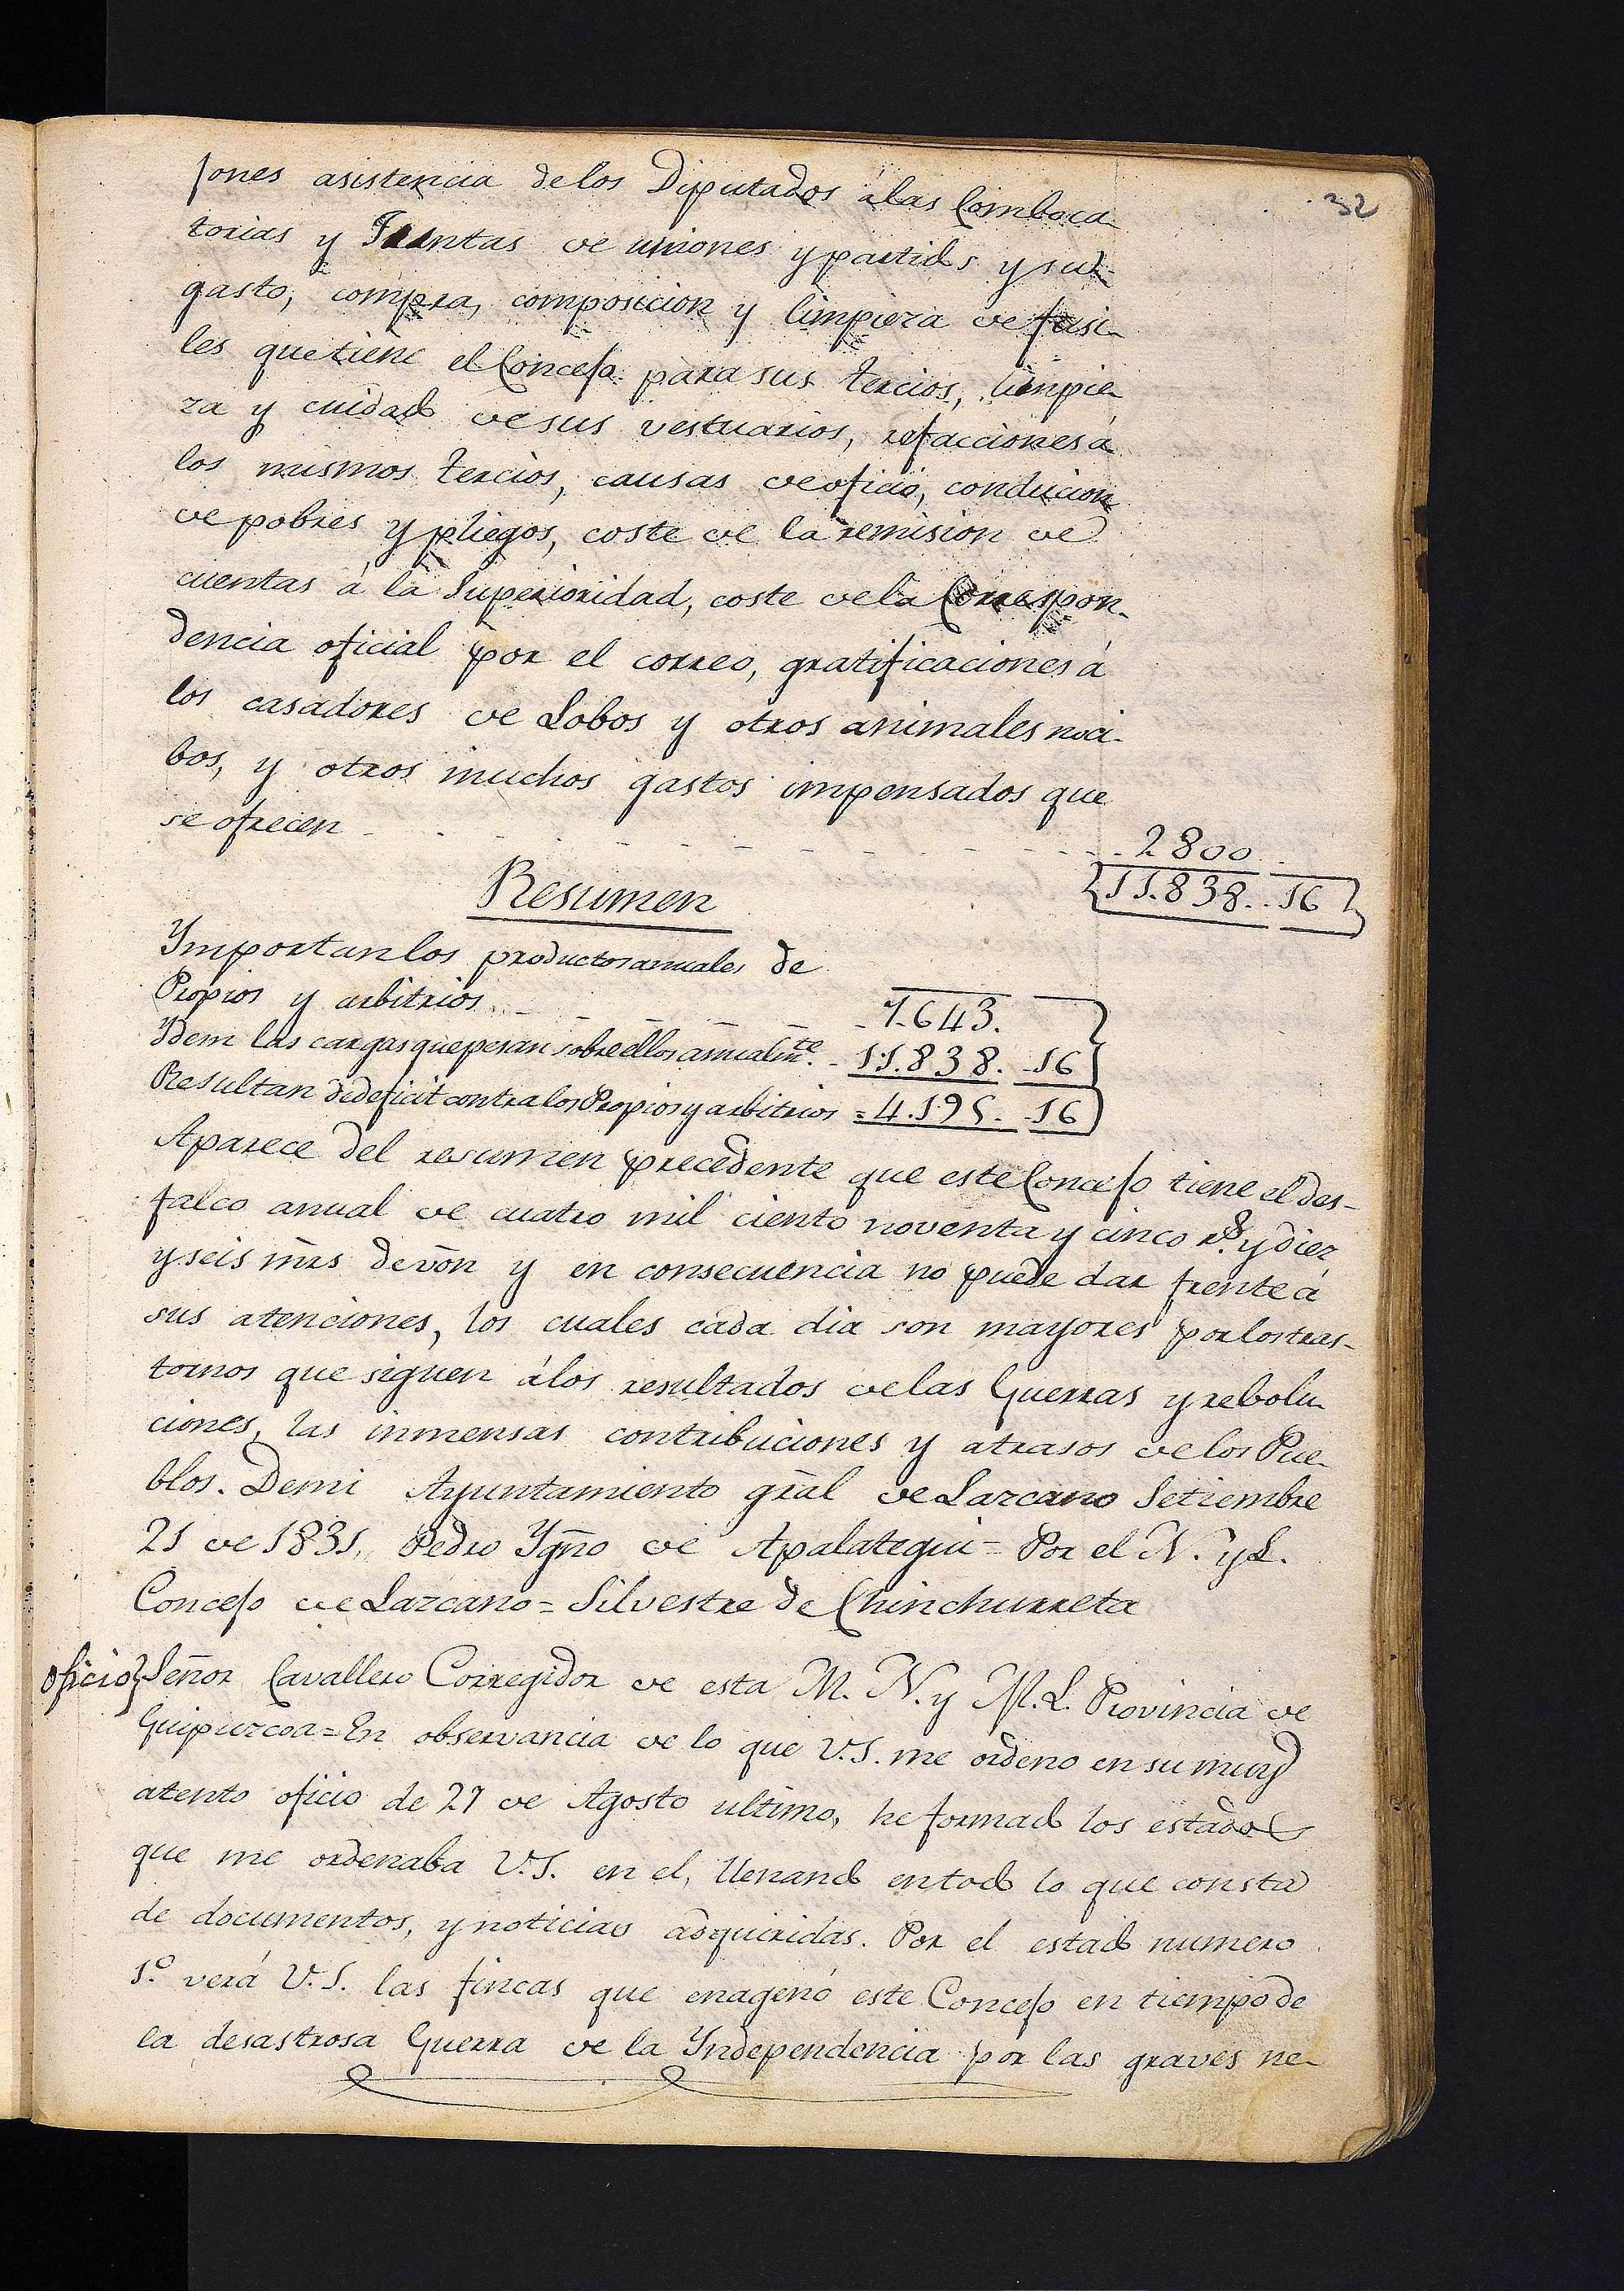 32
siones asistencia de los Diputados á las Comboca
torias y Juntas de uniones y partidos y su
gasto, compra, composicion y limpieza de fusi-
les que tiene el Concejo para sus tercios, limpie
za y cuidado de sus vestuarios, refacciones á
los mismos tercios, causas de oficio, conducion
de pobres y pliegos, coste de la remision de
cuentas á la Superioridad, coste de la Correspon-
dencia oficial por el correo, gratificaciones á
los casadores de Lobos y otros animales noci-
bos, y otros muchos gastos impensados que
se ofrecen - - - - 2800..
11.838..16
Resumen
Ymportan los productos anuales de
Propios y arbitrios - - - - 7.643.
Ydem las cargas que pesan sobre ellos anualmte. - 11.838. -16
Resultan de deficit contra los Propios y arbitrios = 4.195. -16
Aparece del resumen precedente que este Concejo tiene el des-
falco anual de cuatro mil ciento noventa y cinco rs. y diez
y seis mrs de von y en consecuencia no puede dar frente á
sus atenciones, los cuales cada dia son mayores por los tras-
tornos que siguen á los resultados de las Guerras y rebolu-
ciones, las inmensas contribuciones y atrasos de los Pue-
blos. De mi Ayuntamiento gral de Lazcano Setiembre
21 de 1831. Pedro Ygno de Apalategui = Por el N. y L.
Concejo de Lazcano = Silvestre de Chinchurreta
Oficio} Señor Cavallero Corregidor de esta M. N. y M. L. Provincia de
Guipuzcoa = En observancia de lo que V.S. me ordeno en su muy
atento oficio de 27 de Agosto ultimo, he formado los estados
que me ordenaba V.S. en el, llenando en todo lo que consta
de documentos, y noticias adquiridas. Por el estado numero
1.º verá V.S. las fincas que enagenó este Concejo en tiempo de
la desastrosa Guerra de la Yndependencia por las graves ne-